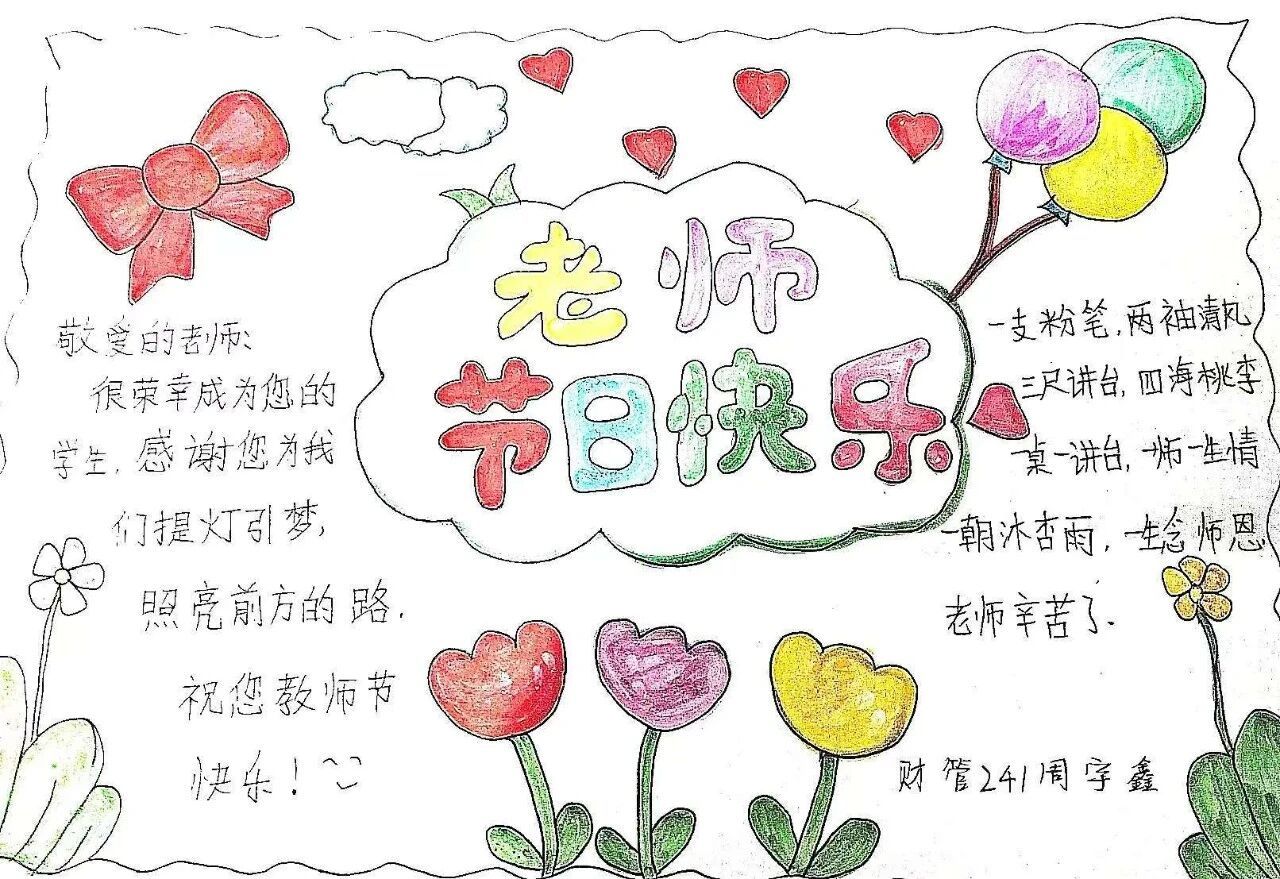 老师
节日快乐
敬爱的老师:
很荣幸成为您的
学生,感谢您为我
们提灯引梦,
照亮前方的路.
祝您教师节
快乐!
一支粉笔,两袖清风
三尺讲台,四海桃李
一桌一讲台,一师一生情
一朝沐杏雨,一生念师恩
老师辛苦了.
财管241周字鑫